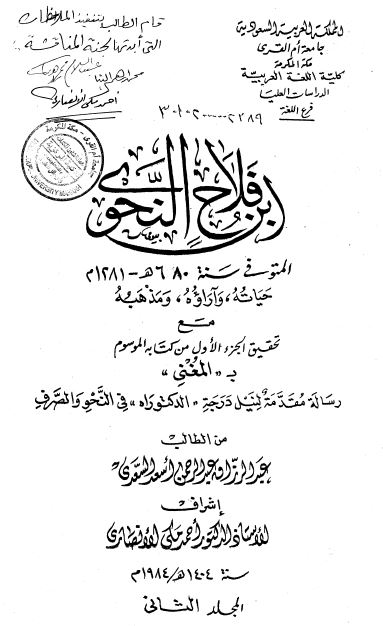 المملكة العربية السعودية
جامعة أم القرى
مكة المكرمة
كلية اللغة العربية
الدراسات العليا
فرع اللغة
قام الطالب بتنفيذ الملاحظات
التي أبدتها لجنة المناقشة
٣٠١٠٢٠٠٠٠٠٢٣٨٩
ابن فلاح النحوي
المتوفى سنة ٦٨٠هـ - ١٢٨١م
حياته، وآراؤه، ومذهبه
مع
تحقيق الجزء الأول من كتابه الموسوم
بـ «المُغْنِي»
رسالة مقدَّمةٌ لِنَيل دَرجَةِ «الدكتوراه» في النَّحْوِ والصَّرفِ
من الطالب
عبد الرزاق عبد الرحمن أسعد السعدي
إشراف
الأستاذ الدكتور أحمد مكي الأنصاري
سنة ١٤٠٤هـ/١٩٨٤م
المجلد الثاني